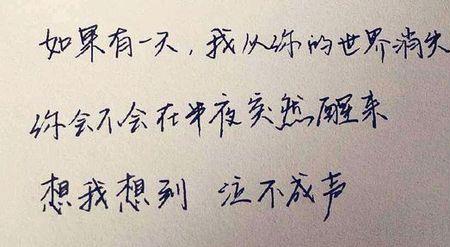 如果有一天，我从你的世界消失
你会不会在半夜突然醒来
想我想到 泣不成声